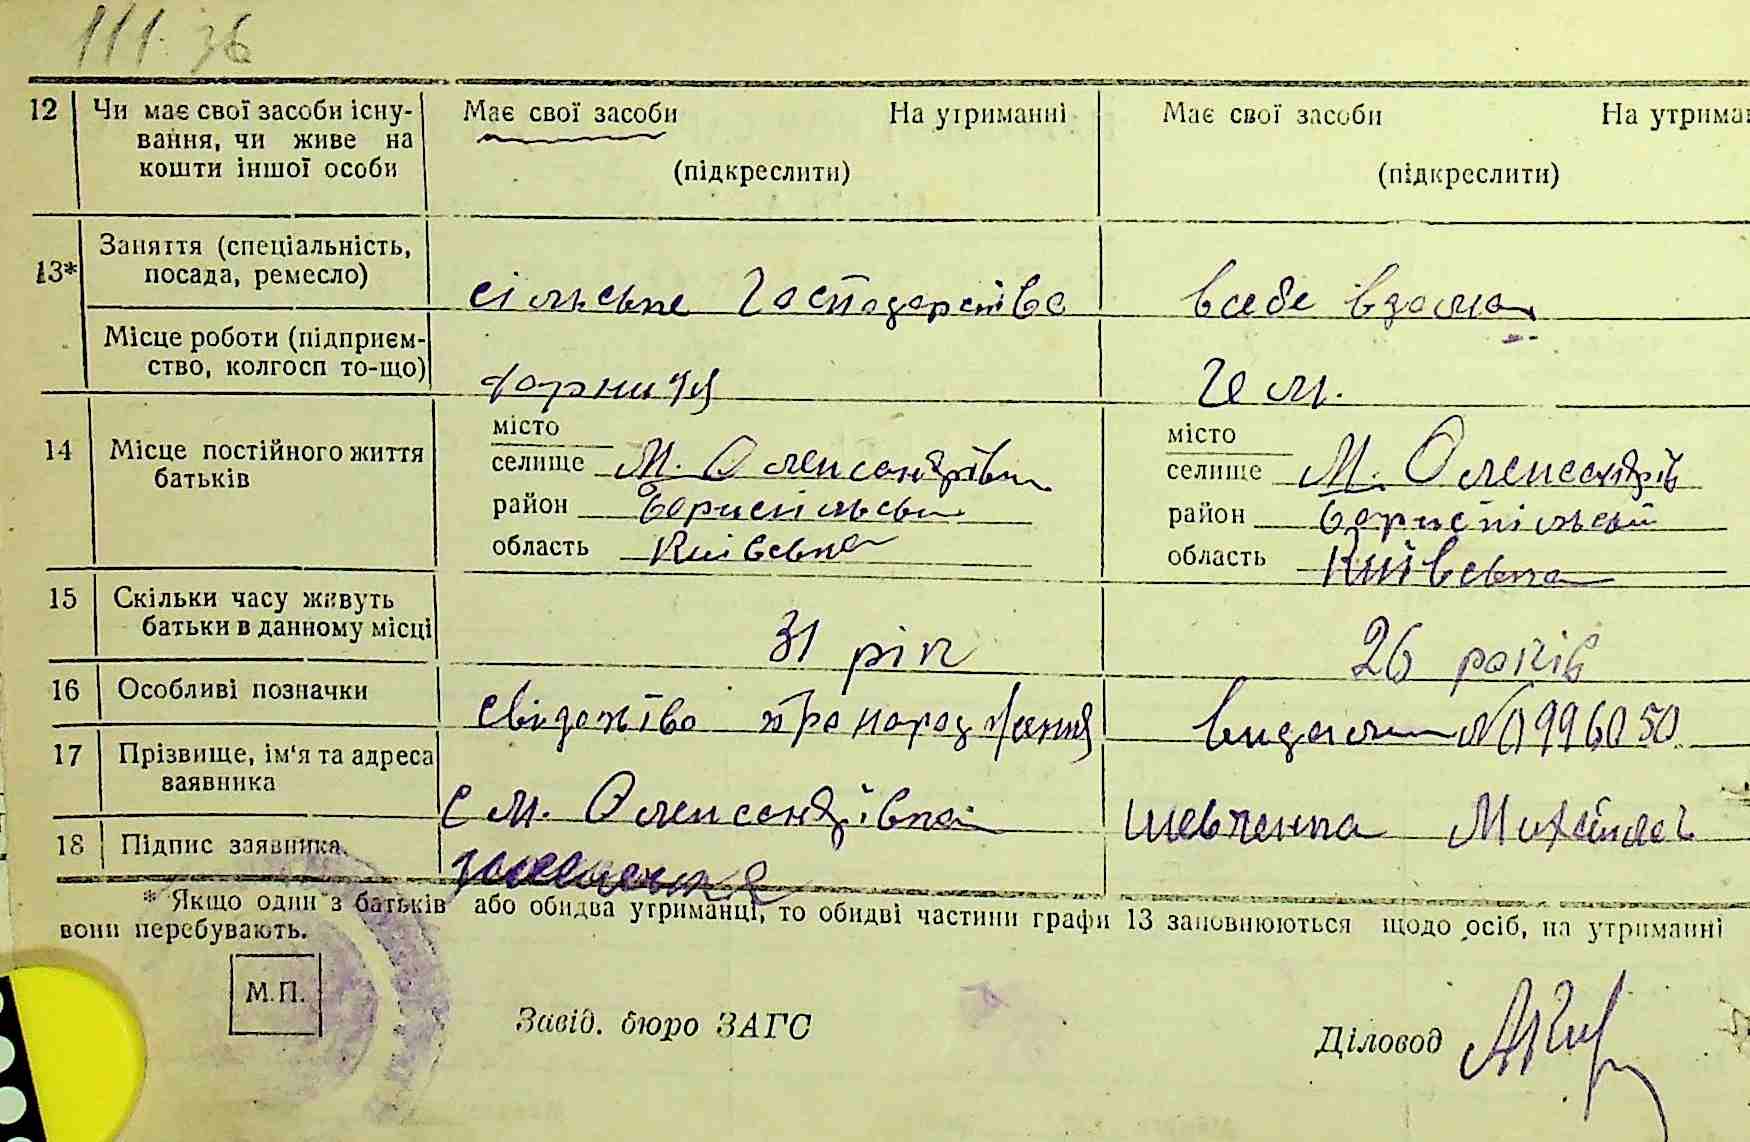 111. 36
12 Чи має свої засоби існу- Має свої засоби На утриманні Має свої засоби На утриман
вання, чи живе на
кошти іншої особи (підкреслити) (підкреслити)
13* Заняття (спеціальність,
посада, ремесло) сільське господарство в себе вдома
Місце роботи (підприєм-
ство, колгосп то-що)
місто місто
14 Місце постійного життя селище М. Олександрівка селище М. Олександрів
батьків район Бориспільськ район Бориспільський
область Київська область Київська
15 Скільки часу живуть
батьки в данному місці 31 рік 26 років
16 Особливі позначки свідоцтво про народження видано № 0996050
17 Прізвище, ім'я та адреса
заявника с М. Олександрівка Шевченко Михайло
18 Підпис заявника
* Якщо один з батьків або обидва утриманці, то обидві частини графи 13 заповнюються щодо осіб, на утриманні
вони перебувають.
М.П.
Завід. бюро ЗАГС Діловод